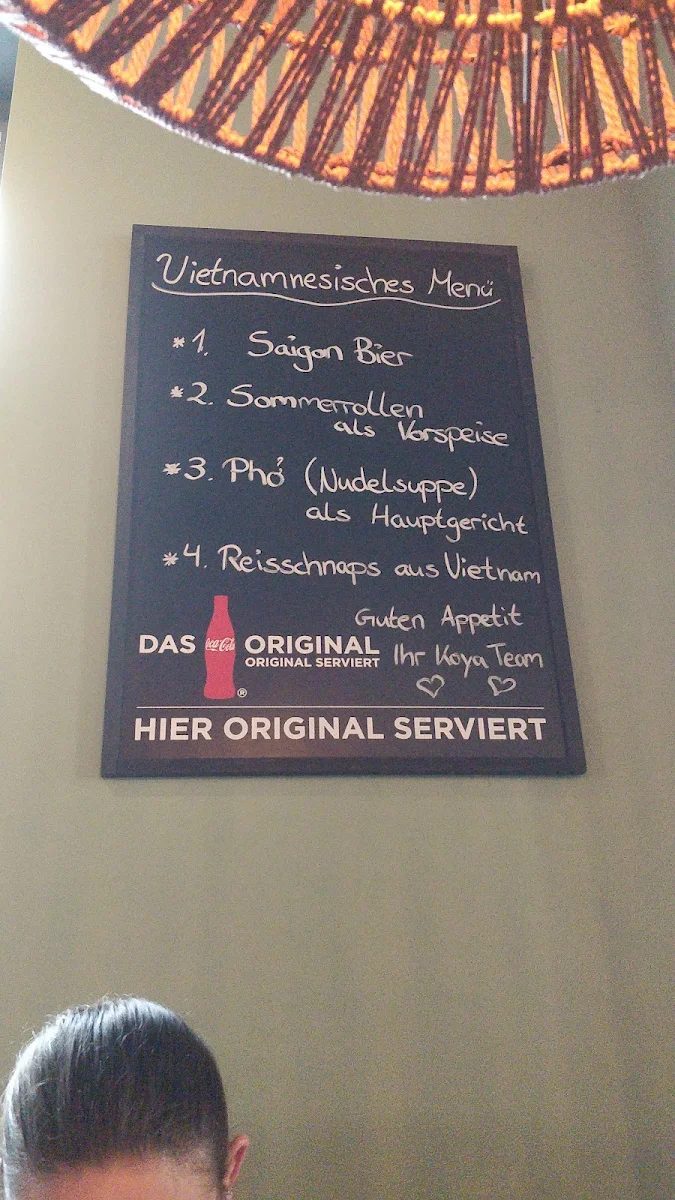 Vietnamnesisches Menü
*1. Saigon Bier
*2. Sommerrollen
als Vorspeise
*3. Phở (Nudelsuppe)
als Hauptgericht
*4. Reisschnaps aus Vietnam
Guten Appetit
Ihr Koya Team
♡ ♡
DAS Coca-Cola ® ORIGINAL
ORIGINAL SERVIERT
HIER ORIGINAL SERVIERT